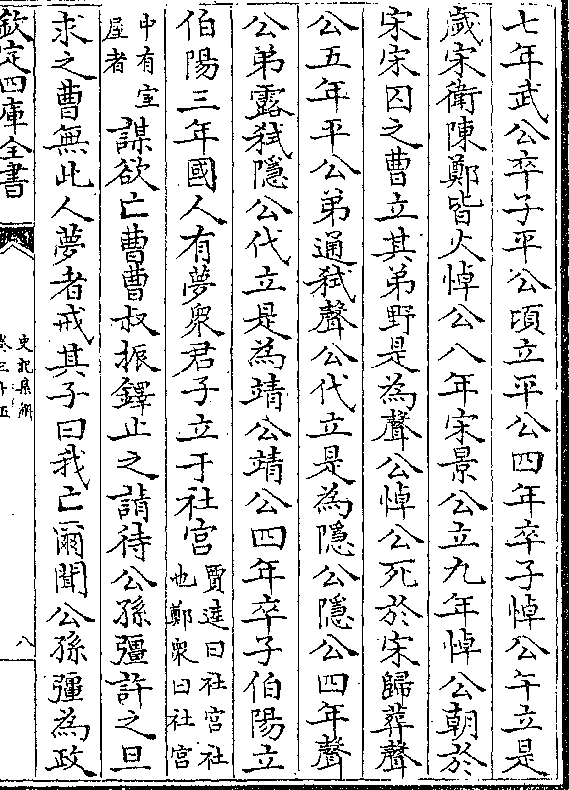 七年武公卒子平公頃立平公四年卒子悼公午立是
歲宋衛陳鄭皆火悼公八年宋景公立九年悼公朝於
宋宋囚之曹立其弟野是為聲公悼公死於宋歸葬聲
公五年平公弟通弑聲公代立是為隱公隱公四年聲
公弟露弑隱公代立是為靖公靖公四年卒子伯陽立
伯陽三年國人有夢衆君子立于社宮賈逵曰社宮社也鄭衆曰社宮
中有室屋者謀欲亡曹曹叔振鐸止之請待公孫彊許之旦
求之曹無此人夢者戒其子曰我亡爾聞公孫彊為政
欽定四庫全書
史記集解
卷三十五
八